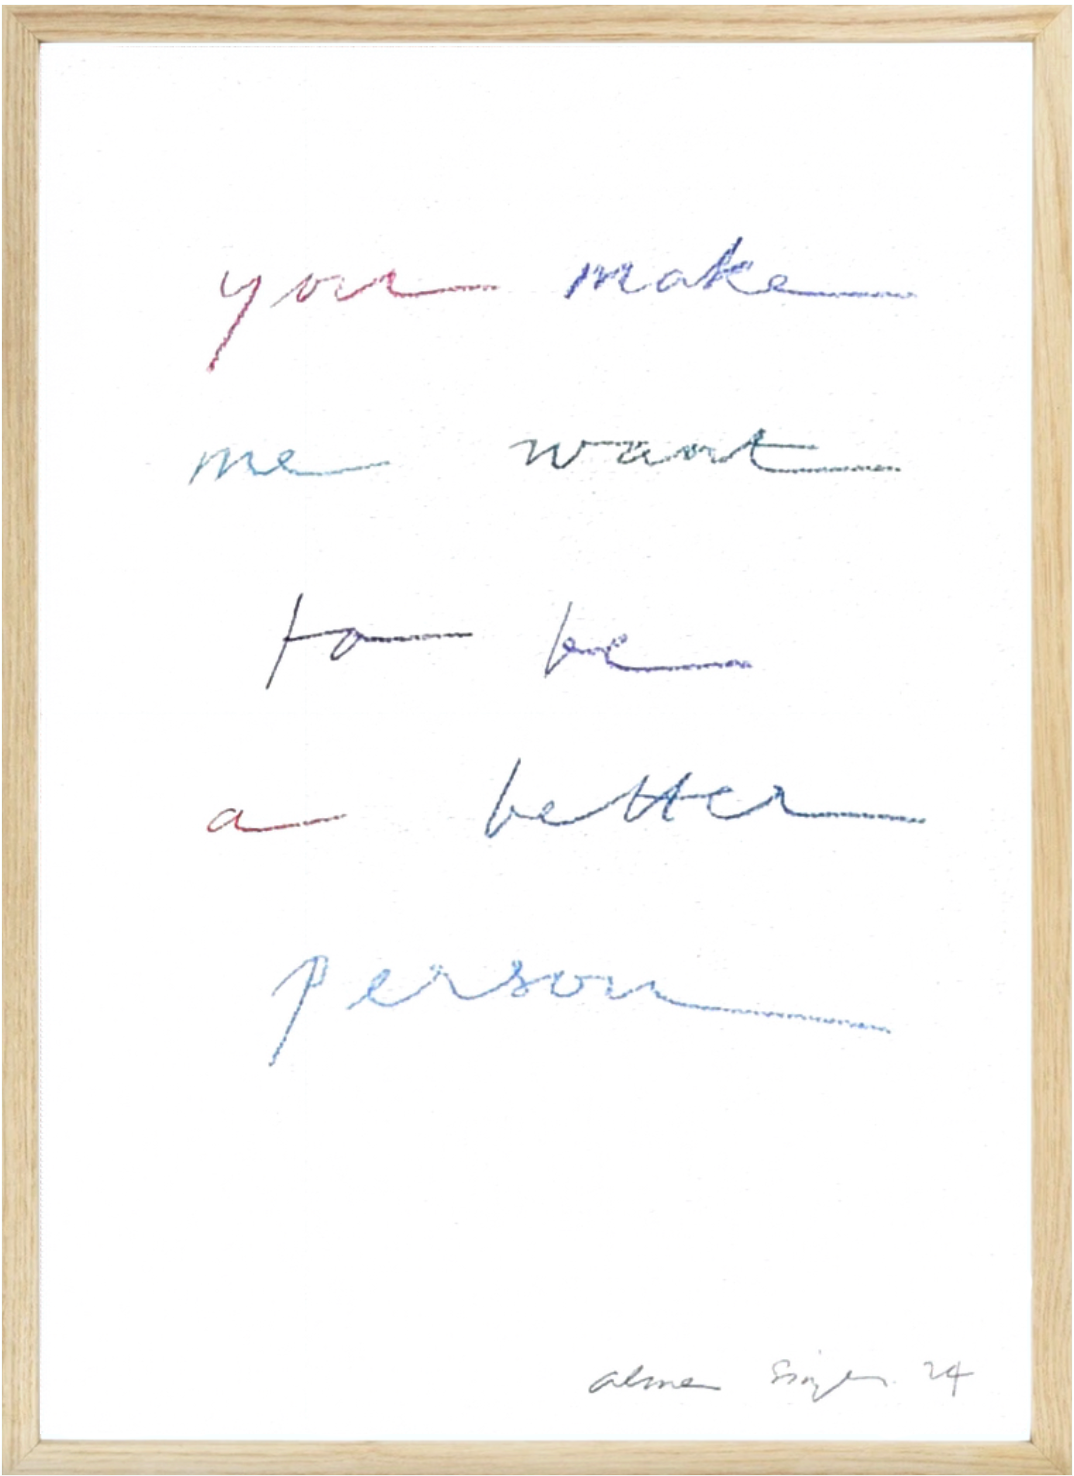 you make
me want
to be
a better
person
alma Singer 24